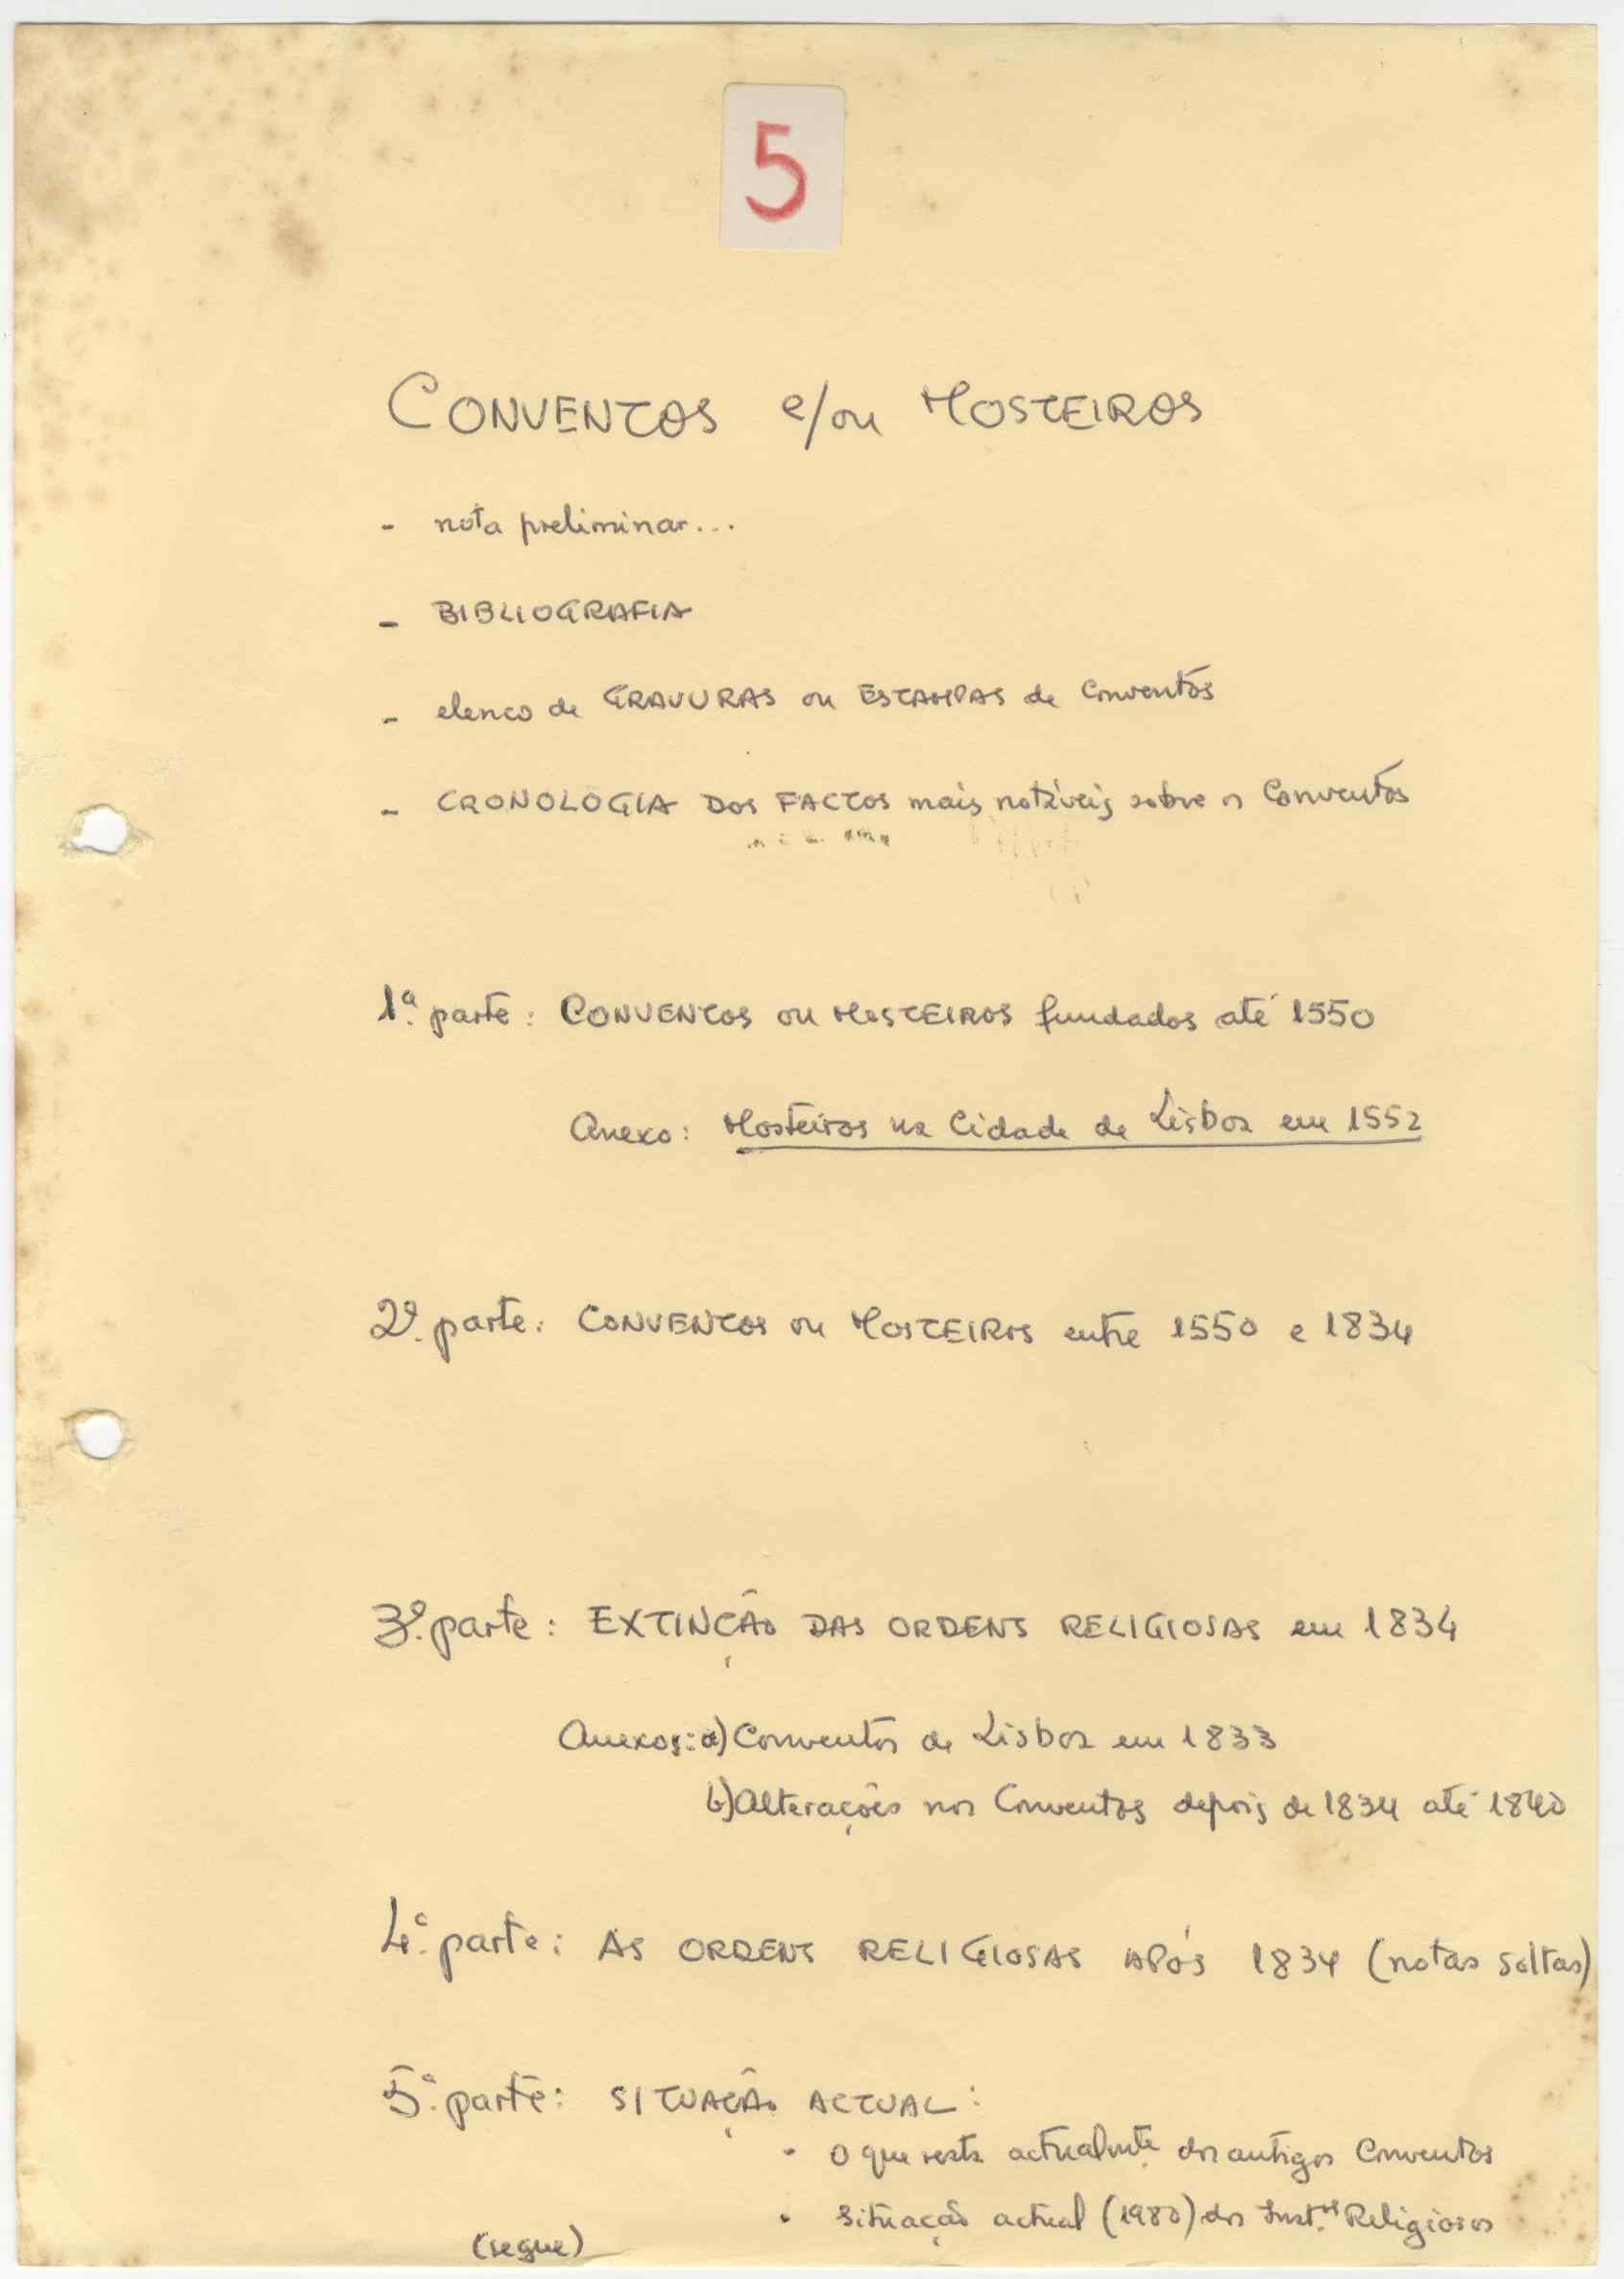 5
CONVENTOS e/ou MOSTEIROS
- nota preliminar...
- BIBLIOGRAFIA
- elenco de GRAVURAS ou ESTAMPAS de Conventos
- CRONOLOGIA DOS FACTOS mais notáveis sobre os Conventos
1ª. parte: CONVENTOS ou MOSTEIROS fundados até 1550
Anexo: Mosteiros na Cidade de Lisboa em 1552
2ª. parte: CONVENTOS ou MOSTEIROS entre 1550 e 1834
3ª. parte: EXTINÇÃO DAS ORDENS RELIGIOSAS em 1834
Anexos: a) Conventos de Lisboa em 1833
b) Alterações nos Conventos depois de 1834 até 1840
4ª. parte: AS ORDENS RELIGIOSAS APÓS 1834 (notas soltas)
5ª. parte: SITUAÇÃO ACTUAL:
• O que resta actualmte. dos antigos Conventos
• Situação actual (1980) dos Inst.os Religiosos
(segue)